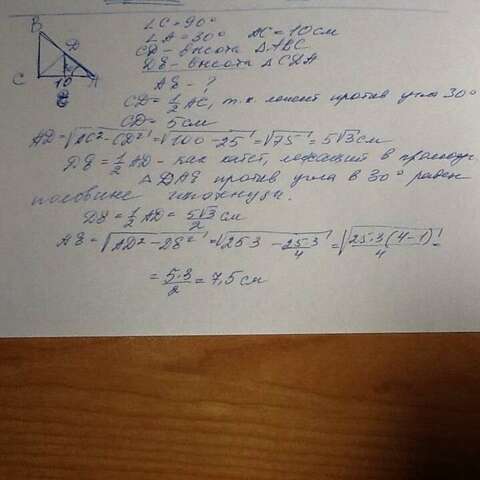 B
D
C 10 A
∠C = 90°
∠A = 30° AC = 10 см
CD - высота ΔABC
DE - высота ΔCDA
AE - ?
CD = 1/2 AC, т.к. лежит против угла 30°
CD = 5 см
AD = √(AC² - CD²) = √(100 - 25) = √75 = 5√3 см
DE = 1/2 AD - как катет, лежащий в прямоуг.
ΔDAE против угла в 30° равен
половине гипотенузы.
DE = 1/2 AD = 5√3/2 см
AE = √(AD² - DE²) = √(25·3 - 25·3/4) = √(25·3(4-1)/4)
= 5·3/2 = 7,5 см